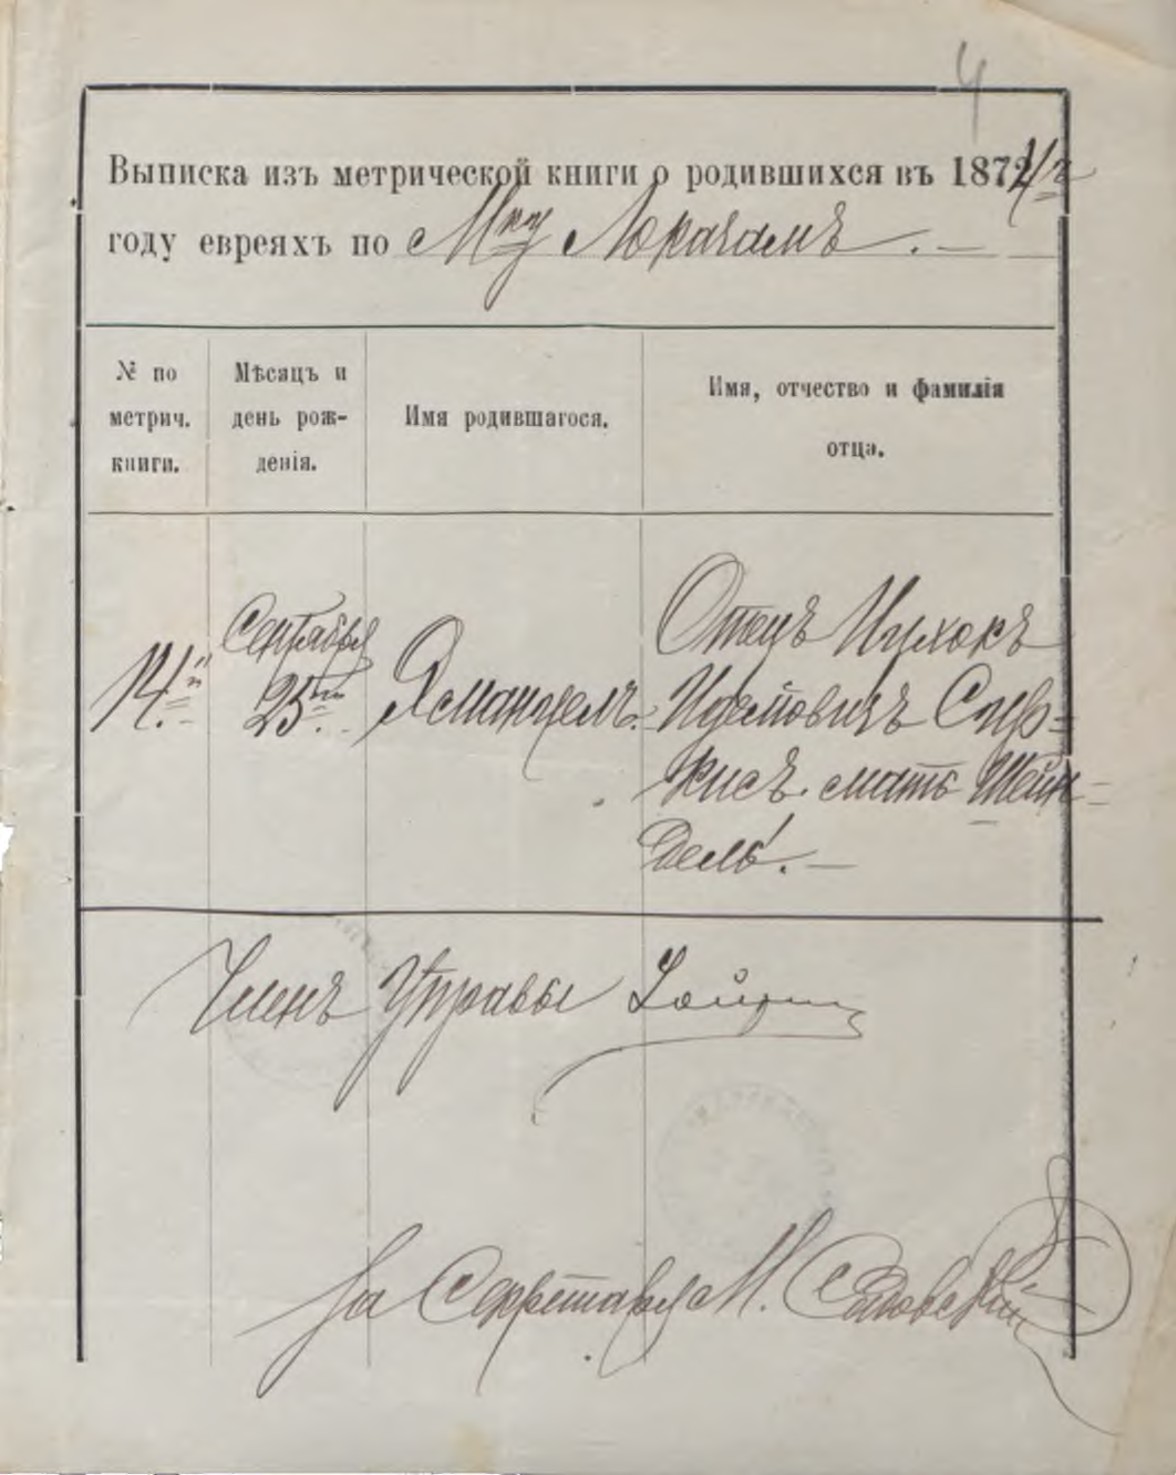 4
Выписка изъ метрической книги о родившихся въ 187
году евреяхъ по Мку Локачамъ.
№ по метрич. книги.
Мѣсяцъ и день рож-денія.
Имя родившагося.
Имя, отчество и фамилія отца.
14й
Сентября
25го
Отецъ Ицхокъ
мать Шейн-
дель.
Членъ Управы
За Секретаря М. Садовскій